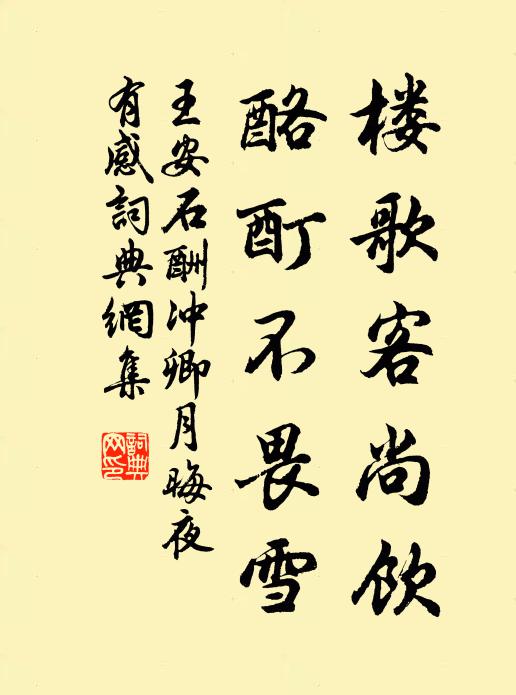 楼歌客尚饮
酩酊不畏雪
王安石酬冲卿月晦夜
有感詞典網集
詞典
网印